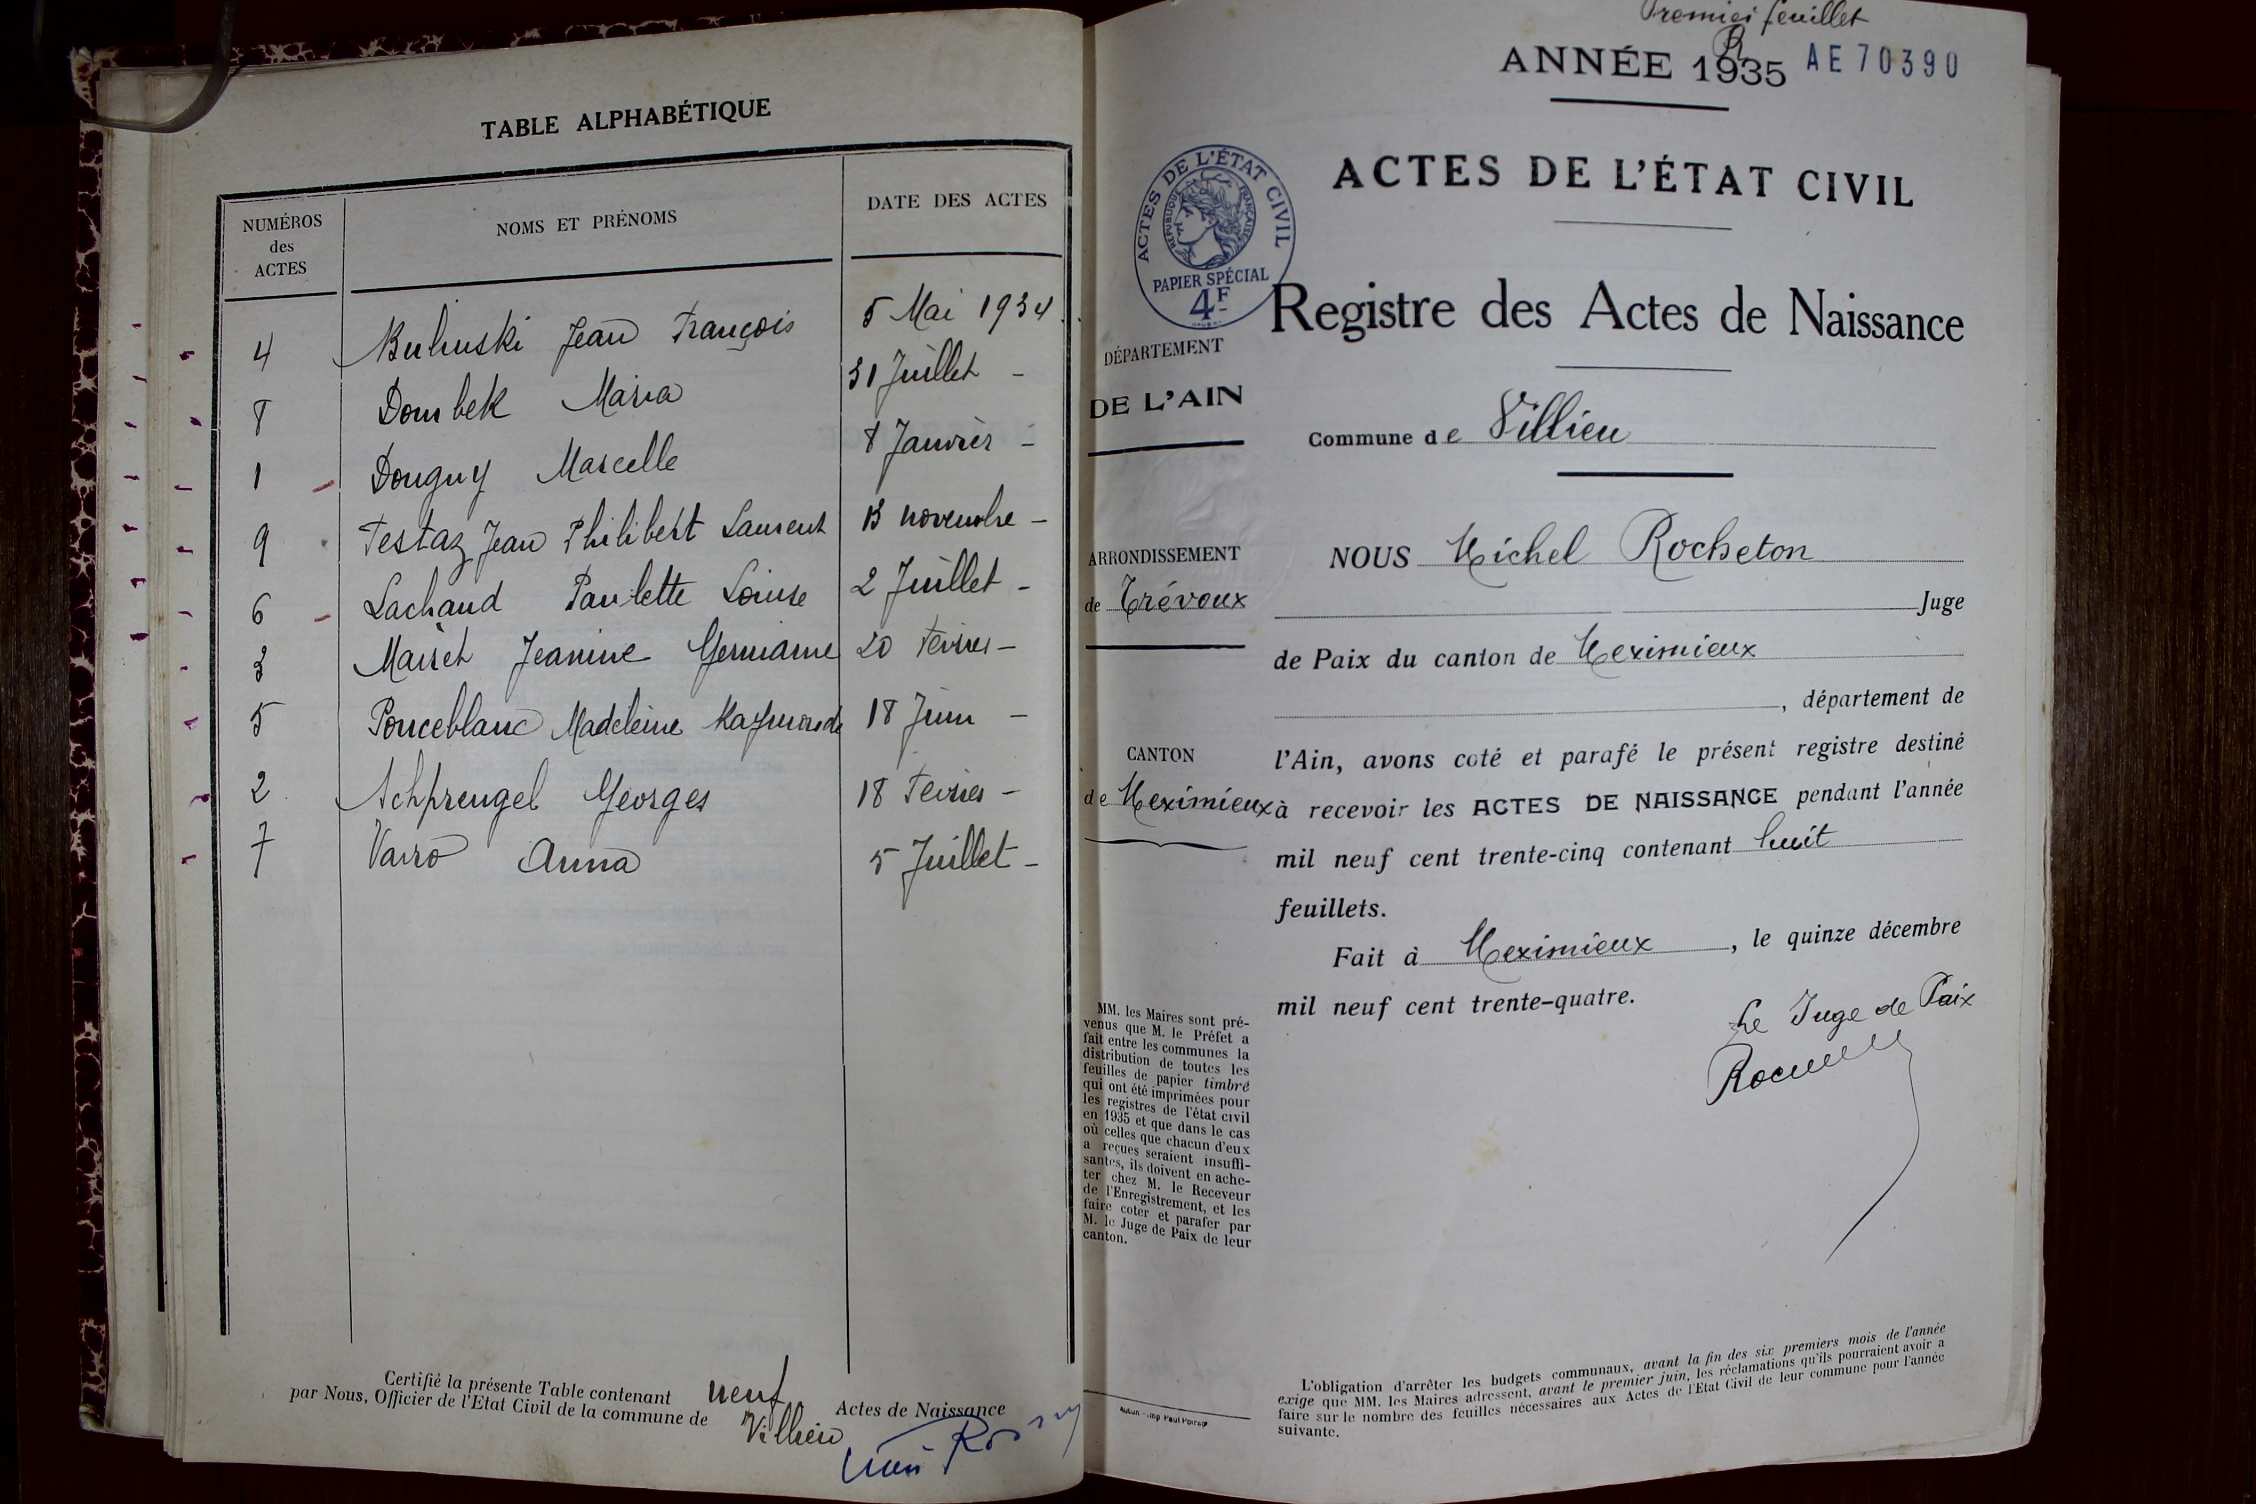 TABLE ALPHABÉTIQUE
NUMÉROS
des
ACTES
NOMS ET PRÉNOMS
DATE DES ACTES
4 Buhuski Jean François 5 Mai 1934
8 Dombek Maria 31 Juillet -
1 Douguy Marcelle 8 Janvier -
9 Testaz Jean Philibert Laurent 13 novembre -
6 Lachaud Paulette Louise 2 Juillet -
3 Mairet Jeanine Germaine 20 Février -
5 Ponceblanc Madeleine Raymonde 18 Juin -
2 Schprengel Georges 18 Février -
7 Varro Anna 5 Juillet -
Certifié la présente Table contenant neuf Actes de Naissance
par Nous, Officier de l'Etat Civil de la commune de Villieu
Premier feuillet
ANNÉE 1935 AE 70390
ACTES DE L'ÉTAT CIVIL
ACTES DE L'ÉTAT CIVIL
RÉPUBLIQUE FRANÇAISE
PAPIER SPÉCIAL
4F
Registre des Actes de Naissance
DÉPARTEMENT
DE L'AIN
Commune de Villieu
ARRONDISSEMENT
de Trévoux
CANTON
de Meximieux
NOUS Michel Rocheton
Juge
de Paix du canton de Meximieux
, département de
l'Ain, avons coté et parafé le présent registre destiné
à recevoir les ACTES DE NAISSANCE pendant l'année
mil neuf cent trente-cinq contenant huit
feuillets.
Fait à Meximieux, le quinze décembre
mil neuf cent trente-quatre.
Le Juge de Paix
MM. les Maires sont pré-
venus que M. le Préfet a
fait entre les communes la
distribution de toutes les
feuilles de papier timbré
qui ont été imprimées pour
les registres de l'état civil
en 1935 et que dans le cas
où celles que chacun d'eux
a reçues seraient insuffi-
santes, ils doivent en ache-
ter chez M. le Receveur
de l'Enregistrement, et les
faire coter et parafer par
M. le Juge de Paix de leur
canton.
L'obligation d'arrêter les budgets communaux, avant la fin des six premiers mois de l'année
exige que MM. les Maires adressent, avant le premier juin, les réclamations qu'ils pourraient avoir a
faire sur le nombre des feuilles nécessaires aux Actes de l'Etat Civil de leur commune pour l'année
suivante.